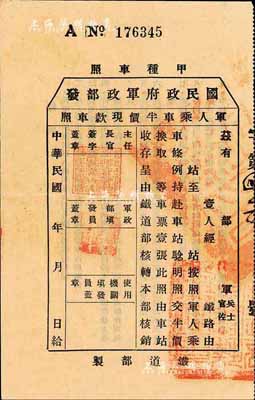 A No 176345
甲種車照
國民政府軍政部發
軍人乘車半價現款車照
茲有 部 軍 官佐 兵士
壹人經 鐵路由
站至 站按照軍人乘
車條例持赴車站驗明照交半價
換取 等車票壹張此照由車站
收存呈由鐵道部核轉本部核銷
主任長官簽字蓋章
軍政部填發員蓋章
使用機關填發員蓋章
中華民國 年 月 日給
鐵道部製